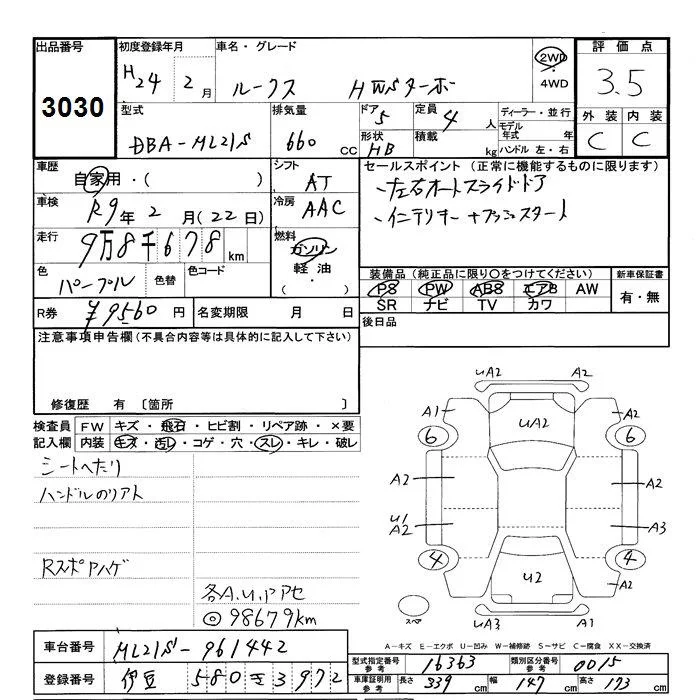 出品番号
3030
初度登録年月
H24年 2月
車名・グレード
ルークス HWSターボ
2WD
4WD
評価点
3.5
型式
DBA-ML21S
排気量
660 CC
ドア 5
定員 4 人
形状 HB
積載 kg
ディーラー・並行
モデル年式 年
ハンドル 左・右
外装 内装
C C
車歴
自家用・( )
車検
R9年 2月(22日)
走行
9万8千678 km
色
パープル
色替
色コード
シフト
AT
冷房
AAC
燃料
ガソリン
軽油
( )
セールスポイント (正常に機能するものに限ります)
・左右オートスライドドア
・インテリキー+プッシュスタート
装備品(純正品に限り○をつけてください)
PS PW ABS エアB AW
SR ナビ TV カワ
新車保証書
有・無
R券 ¥9560 円
名変期限 月 日
後日品
注意事項申告欄(不具合内容等は具体的に記入して下さい)
修復歴 有 〔箇所 〕
検査員記入欄
FW キズ・飛石・ヒビ割・リペア跡・×要
内装 キズ・汚れ・コゲ・穴・スレ・キレ・破レ
シートヘたり
ハンドルのリアト
Rスポアハゲ
各A.U.Pアセ
◎98679km
UA2 A2
A1 UA2 A2
6 6
A2 A2
U1
A2 A2 A3
4 4
U2
A2 A1
スペア
UA3 A1
A-キズ E-エクボ U-凹み W-補修跡 S-サビ C-腐食 XX-交換済
車台番号
ML21S-961442
登録番号
伊豆 580 き 3972
型式指定番号 参考 16363
類別区分番号 参考 0015
車庫証明用 参考 長さ 339 cm 幅 147 cm 高さ 173 cm